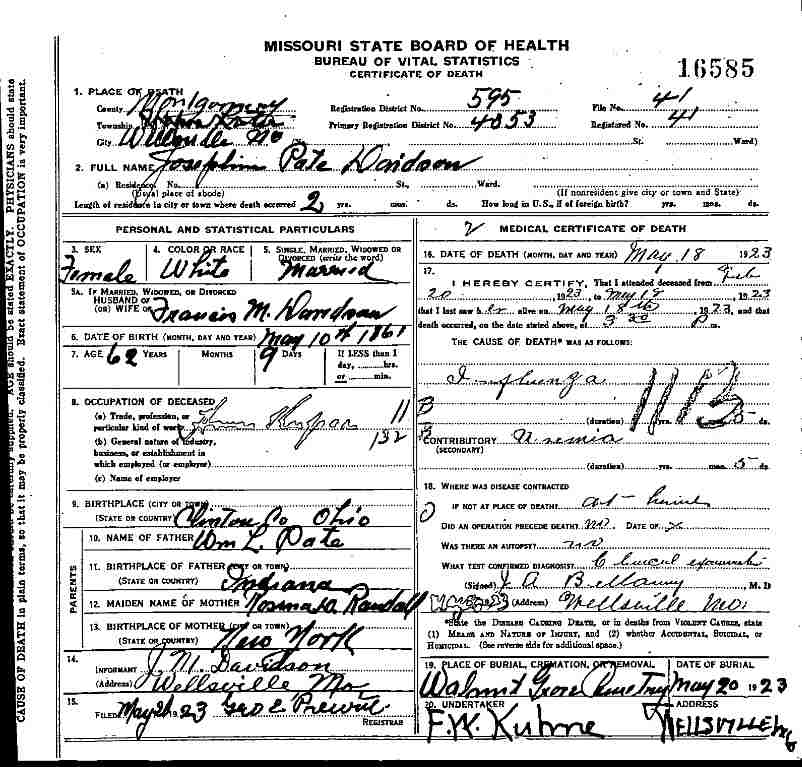 MISSOURI STATE BOARD OF HEALTH
BUREAU OF VITAL STATISTICS
CERTIFICATE OF DEATH
16585
1. PLACE OF DEATH
County Montgomery Registration District No. 595 File No. 41
Township Primary Registration District No. 4353 Registered No. 41
City Wellsville Mo St. Ward)
2. FULL NAME Josephine Pate Davidson
(a) Residence. No. St., Ward.
(Usual place of abode) (If nonresident give city or town and State)
Length of residence in city or town where death occurred 2 yrs. mos. ds. How long in U.S., if of foreign birth? yrs. mos. ds.
PERSONAL AND STATISTICAL PARTICULARS
3. SEX
Female
4. COLOR OR RACE
White
5. SINGLE, MARRIED, WIDOWED OR
DIVORCED (write the word)
Married
5A. IF MARRIED, WIDOWED, OR DIVORCED
HUSBAND OF
(OR) WIFE OF Francis M. Davidson
6. DATE OF BIRTH (MONTH, DAY AND YEAR) May 10th 1861
7. AGE 62 YEARS MONTHS 9 DAYS If LESS than 1
day, hrs.
or min.
8. OCCUPATION OF DECEASED
(a) Trade, profession, or
particular kind of work 11
(b) General nature of industry, 132
business, or establishment in
which employed (or employer)
(c) Name of employer
9. BIRTHPLACE (CITY OR TOWN)
(STATE OR COUNTRY) Clinton Co. Ohio
PARENTS
10. NAME OF FATHER Wm L. Pate
11. BIRTHPLACE OF FATHER (CITY OR TOWN)
(STATE OR COUNTRY) Indiana
12. MAIDEN NAME OF MOTHER Randall
13. BIRTHPLACE OF MOTHER (CITY OR TOWN)
(STATE OR COUNTRY) New York
14.
INFORMANT Davidson
(Address) Wellsville Mo
15.
FILED May 21 1923 Geo E Prewitt
REGISTRAR
2 MEDICAL CERTIFICATE OF DEATH
16. DATE OF DEATH (MONTH, DAY AND YEAR) May 18 1923
17.
I HEREBY CERTIFY, That I attended deceased from Feb
20, 1923, to May 18, 1923
that I last saw her alive on May 18th, 1923, and that
death occurred, on the date stated above, at 3 30 P m.
THE CAUSE OF DEATH* WAS AS FOLLOWS:
Influenza
B
(duration) yrs. mos. 5 ds.
CONTRIBUTORY Uremia
(SECONDARY)
(duration) yrs. mos. 5 ds.
18. WHERE WAS DISEASE CONTRACTED
IF NOT AT PLACE OF DEATH? at home
DID AN OPERATION PRECEDE DEATH? no. DATE OF x
WAS THERE AN AUTOPSY? no
WHAT TEST CONFIRMED DIAGNOSIS? Clinical examination
(Signed) J A Bellamy M. D
(Address) Wellsville Mo.
*State the DISEASE CAUSING DEATH, or in deaths from VIOLENT CAUSES, state
(1) MEANS AND NATURE OF INJURY, and (2) whether ACCIDENTAL, SUICIDAL, or
HOMICIDAL. (See reverse side for additional space.)
19. PLACE OF BURIAL, CREMATION, OR REMOVAL
Walnut Grove Cemetry
DATE OF BURIAL
May 20 1923
20. UNDERTAKER
F.W. Kuhne
ADDRESS
WELLSVILLE Mo
AGE should be stated EXACTLY. PHYSICIANS should state
CAUSE OF DEATH in plain terms, so that it may be properly classified. Exact statement of OCCUPATION is very important.